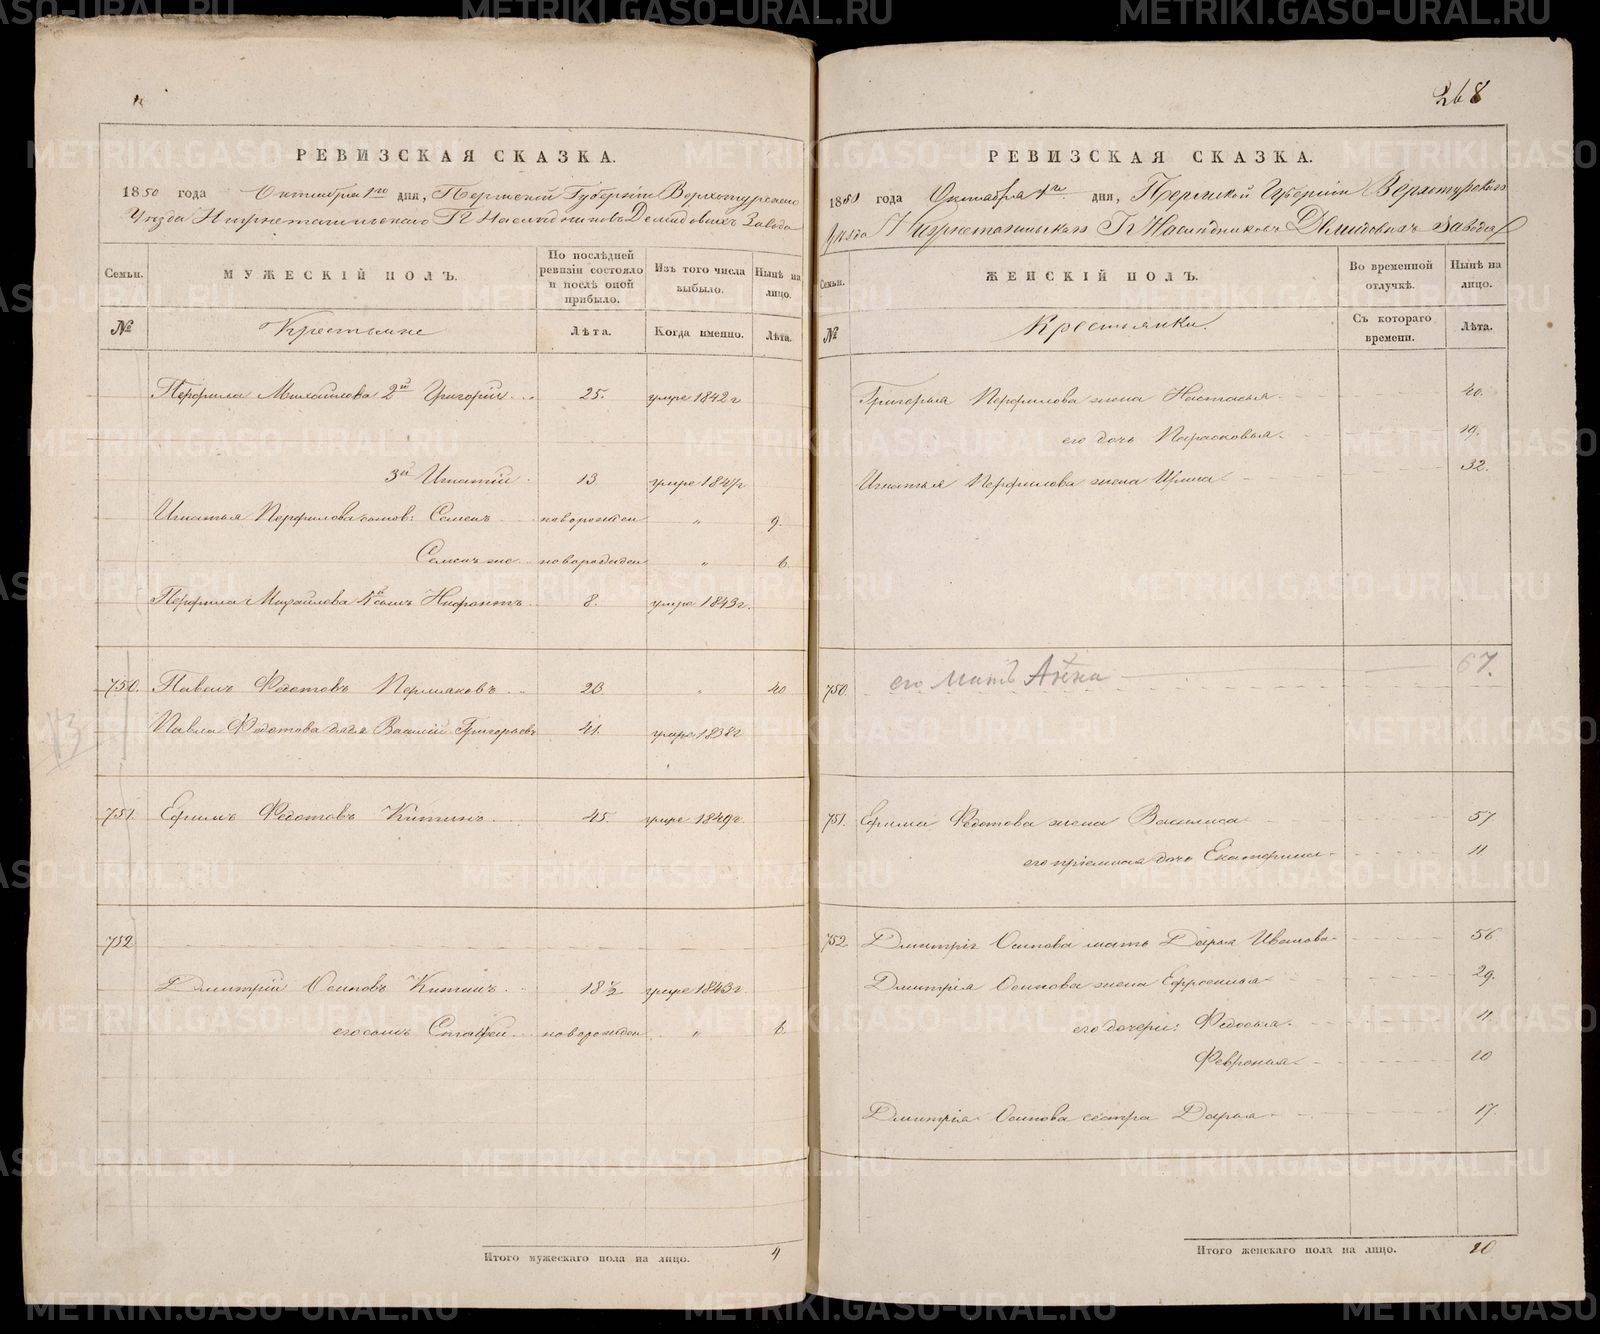 268
РЕВИЗСКАЯ СКАЗКА.
1850 года Октября 1го дня, Пермской Губернии Верхотурскаго
Уезда Нижнетагильскаго Гг Наследниковъ Демидовыхъ Завода
Семьи. МУЖЕСКІЙ ПОЛЪ. По послѣдней ревизіи состояло и послѣ оной прибыло. Изъ того числа выбыло. Нынѣ на лицо.
№ Крестьяне Лѣта. Когда именно. Лѣта.
Перфила Михайлова 2й Григорій 25. умре 1842 г
3й Игнатій 13 умре 1847 г
Игнатья Перфилова сынов: Семенъ новорожден " 9.
Семенъ же новорожден " 6.
Перфила Михайлова 4й сынъ Нифонтъ 8. умре 1843 г.
750. Павелъ Федотовъ Пермяковъ 23 " 40
Павла Федотова дядя Василій Григорьевъ 41. умре 1838 г
751. Ефимъ Федотовъ Китинъ 45. умре 1849 г.
752
Дмитрій Осиповъ Китинъ 18 1/2 умре 1843 г
его сынъ Статфей новорожден " 6
Итого мужескаго пола на лицо. 4
РЕВИЗСКАЯ СКАЗКА.
1850 года Октября 1го дня, Пермской Губерніи Верхотурскаго
Уезда Нижнетагильскаго Гг Наследниковъ Демидовыхъ Завода
Семьи. ЖЕНСКІЙ ПОЛЪ. Во временной отлучкѣ. Нынѣ на лицо.
№ Крестьянки. Съ котораго времени. Лѣта.
Григорья Перфилова жена Настасья 40.
его дочь Парасковья 19.
Игнатья Перфилова жена Ирина 32.
750. его мать Анна 67.
751. Ефима Федотова жена Василиса 57
его пріемная дочь Екатерина 11
752. Дмитрія Осипова мать Дарья Иванова 56
Дмитрія Осипова жена Ефросинья 29.
его дочери: Федосья 11
Февронья 10
Дмитрія Осипова сестра Дарья 17.
Итого женскаго пола на лицо. 10
METRIKI.GASO-URAL.RU